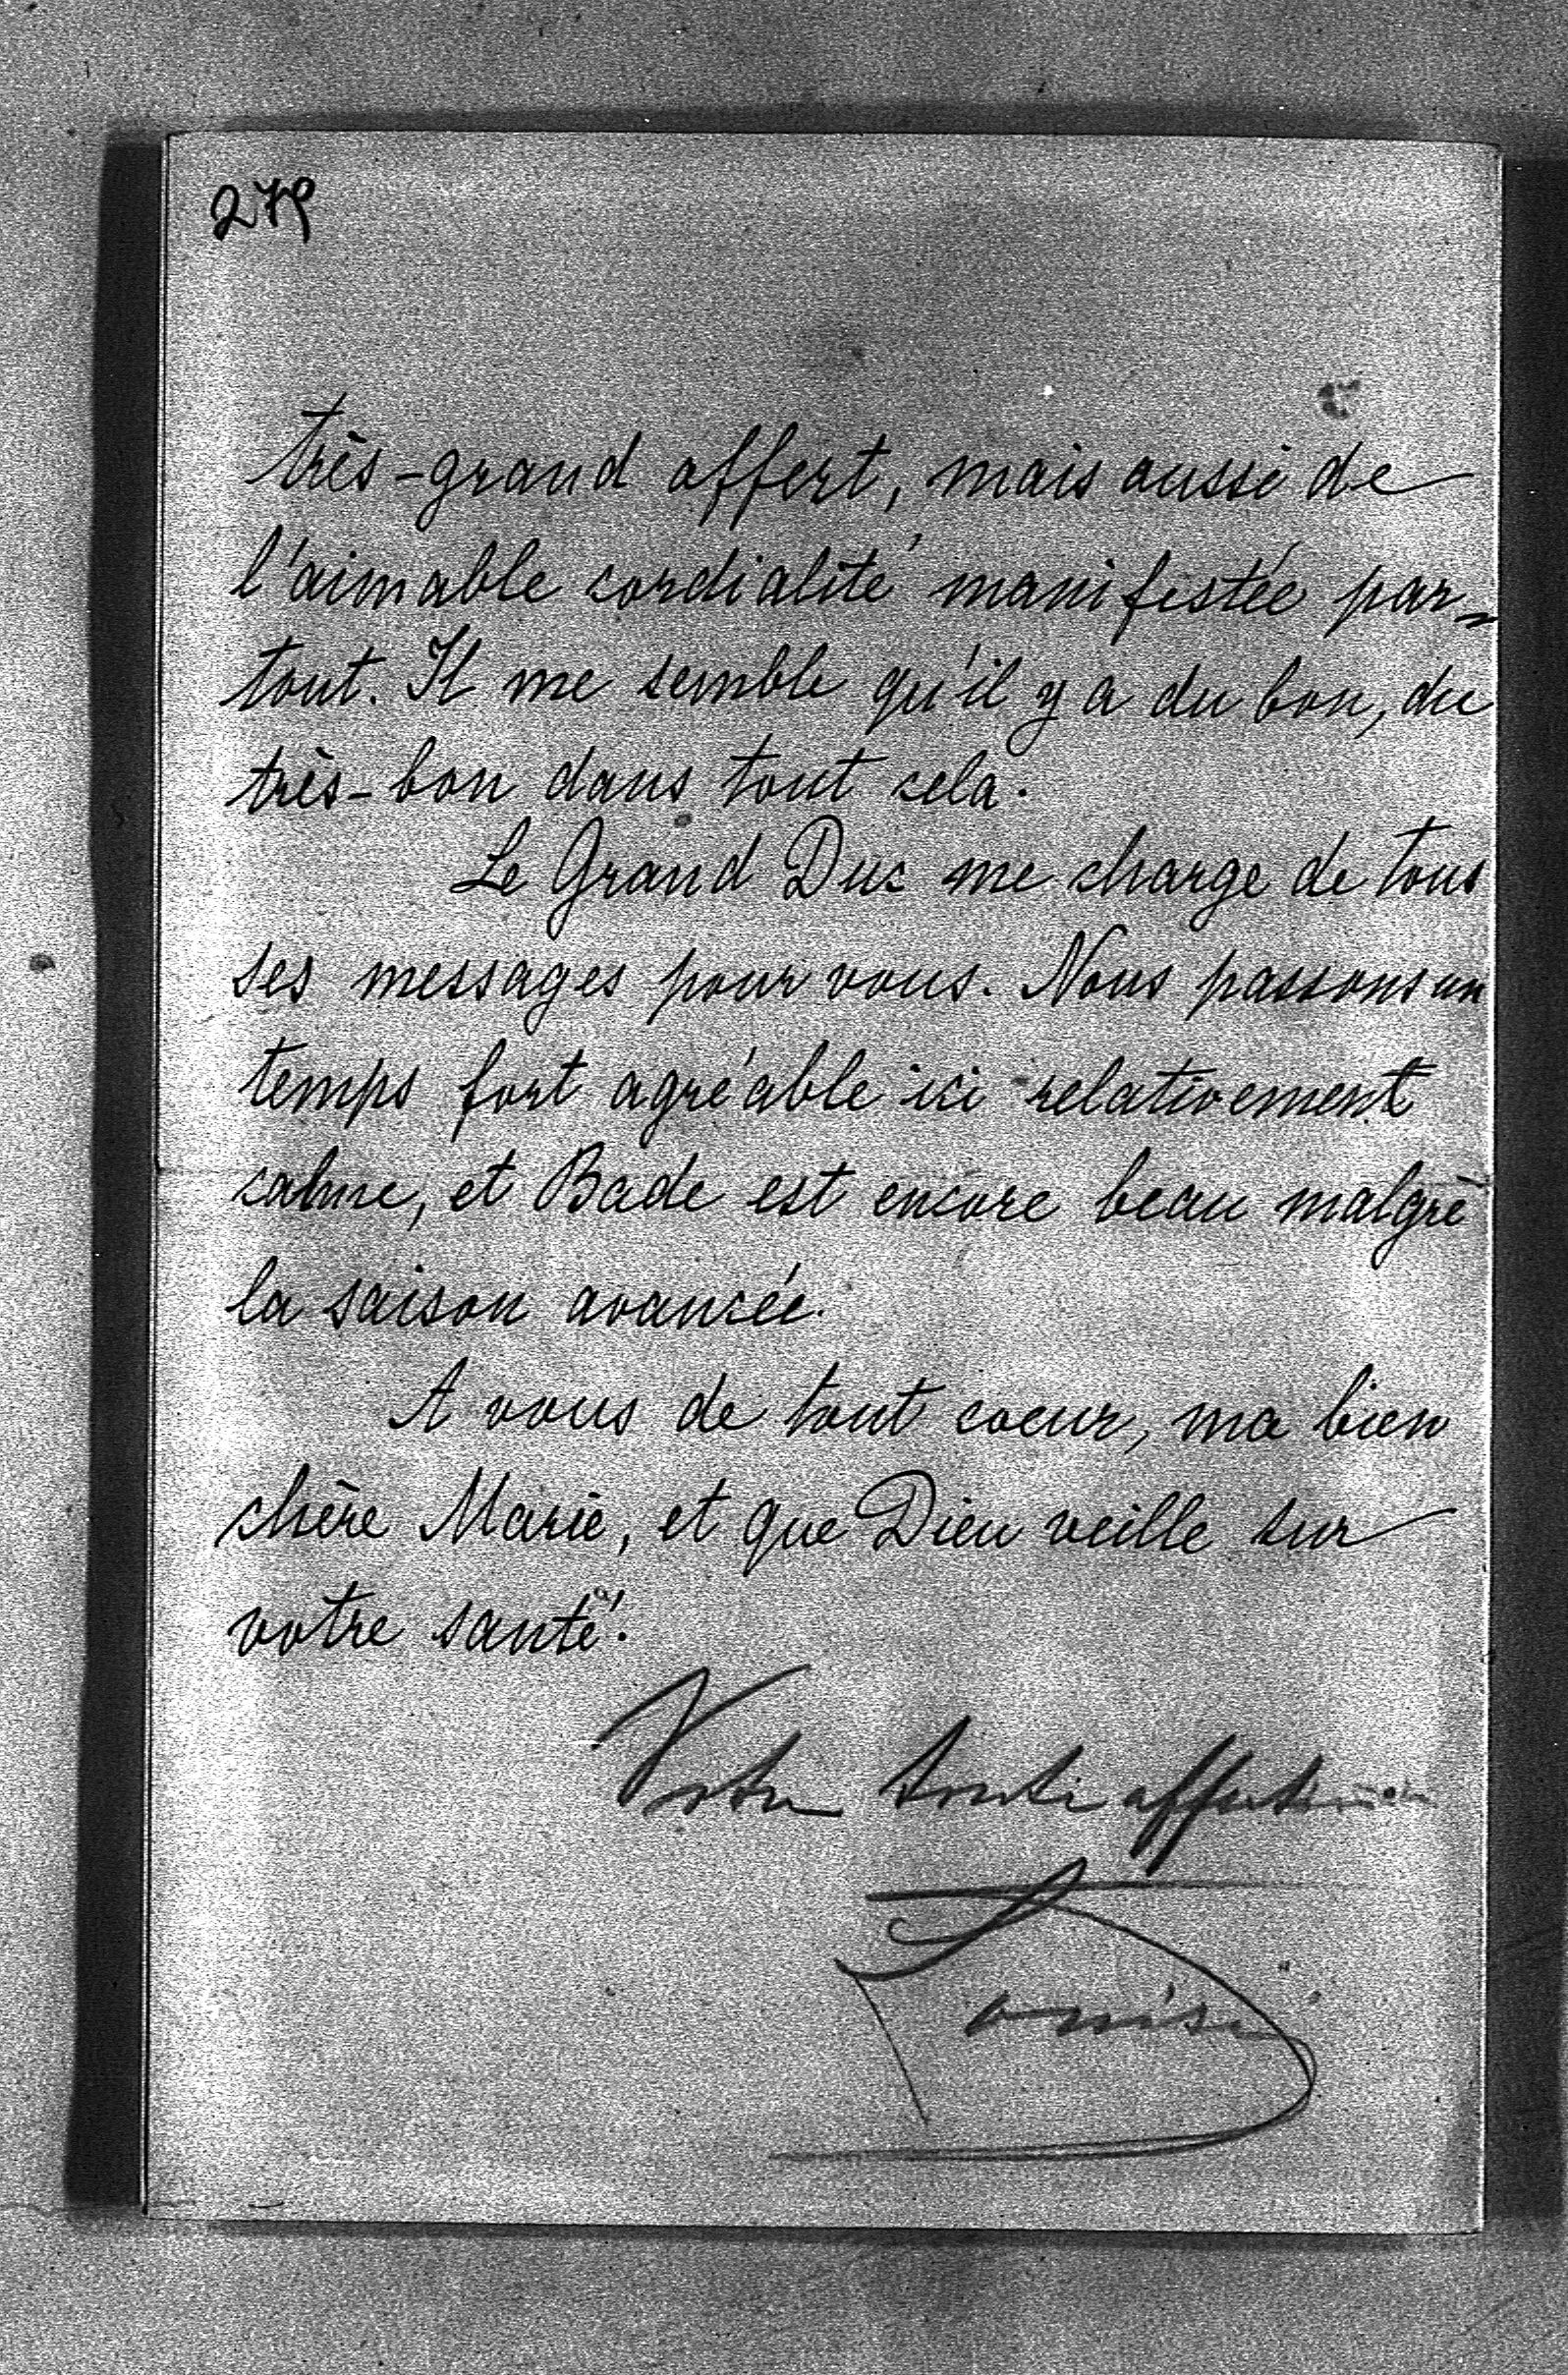 279
très-grand offert, mais aussi de
l'aimable cordialité manifestée par=
tout. Il me semble qu'il y a du bon, du
très-bon dans tout cela.
Le Grand Duc me charge de tous
ses messages pour vous. Nous passons un
temps fort agréable ici relativement
calme, et Bade est encore beau malgré
la saison avancée.
A vous de tout coeur, ma bien
chère Marie, et que Dieu veille sur
votre santé.
Votre toute
Louise